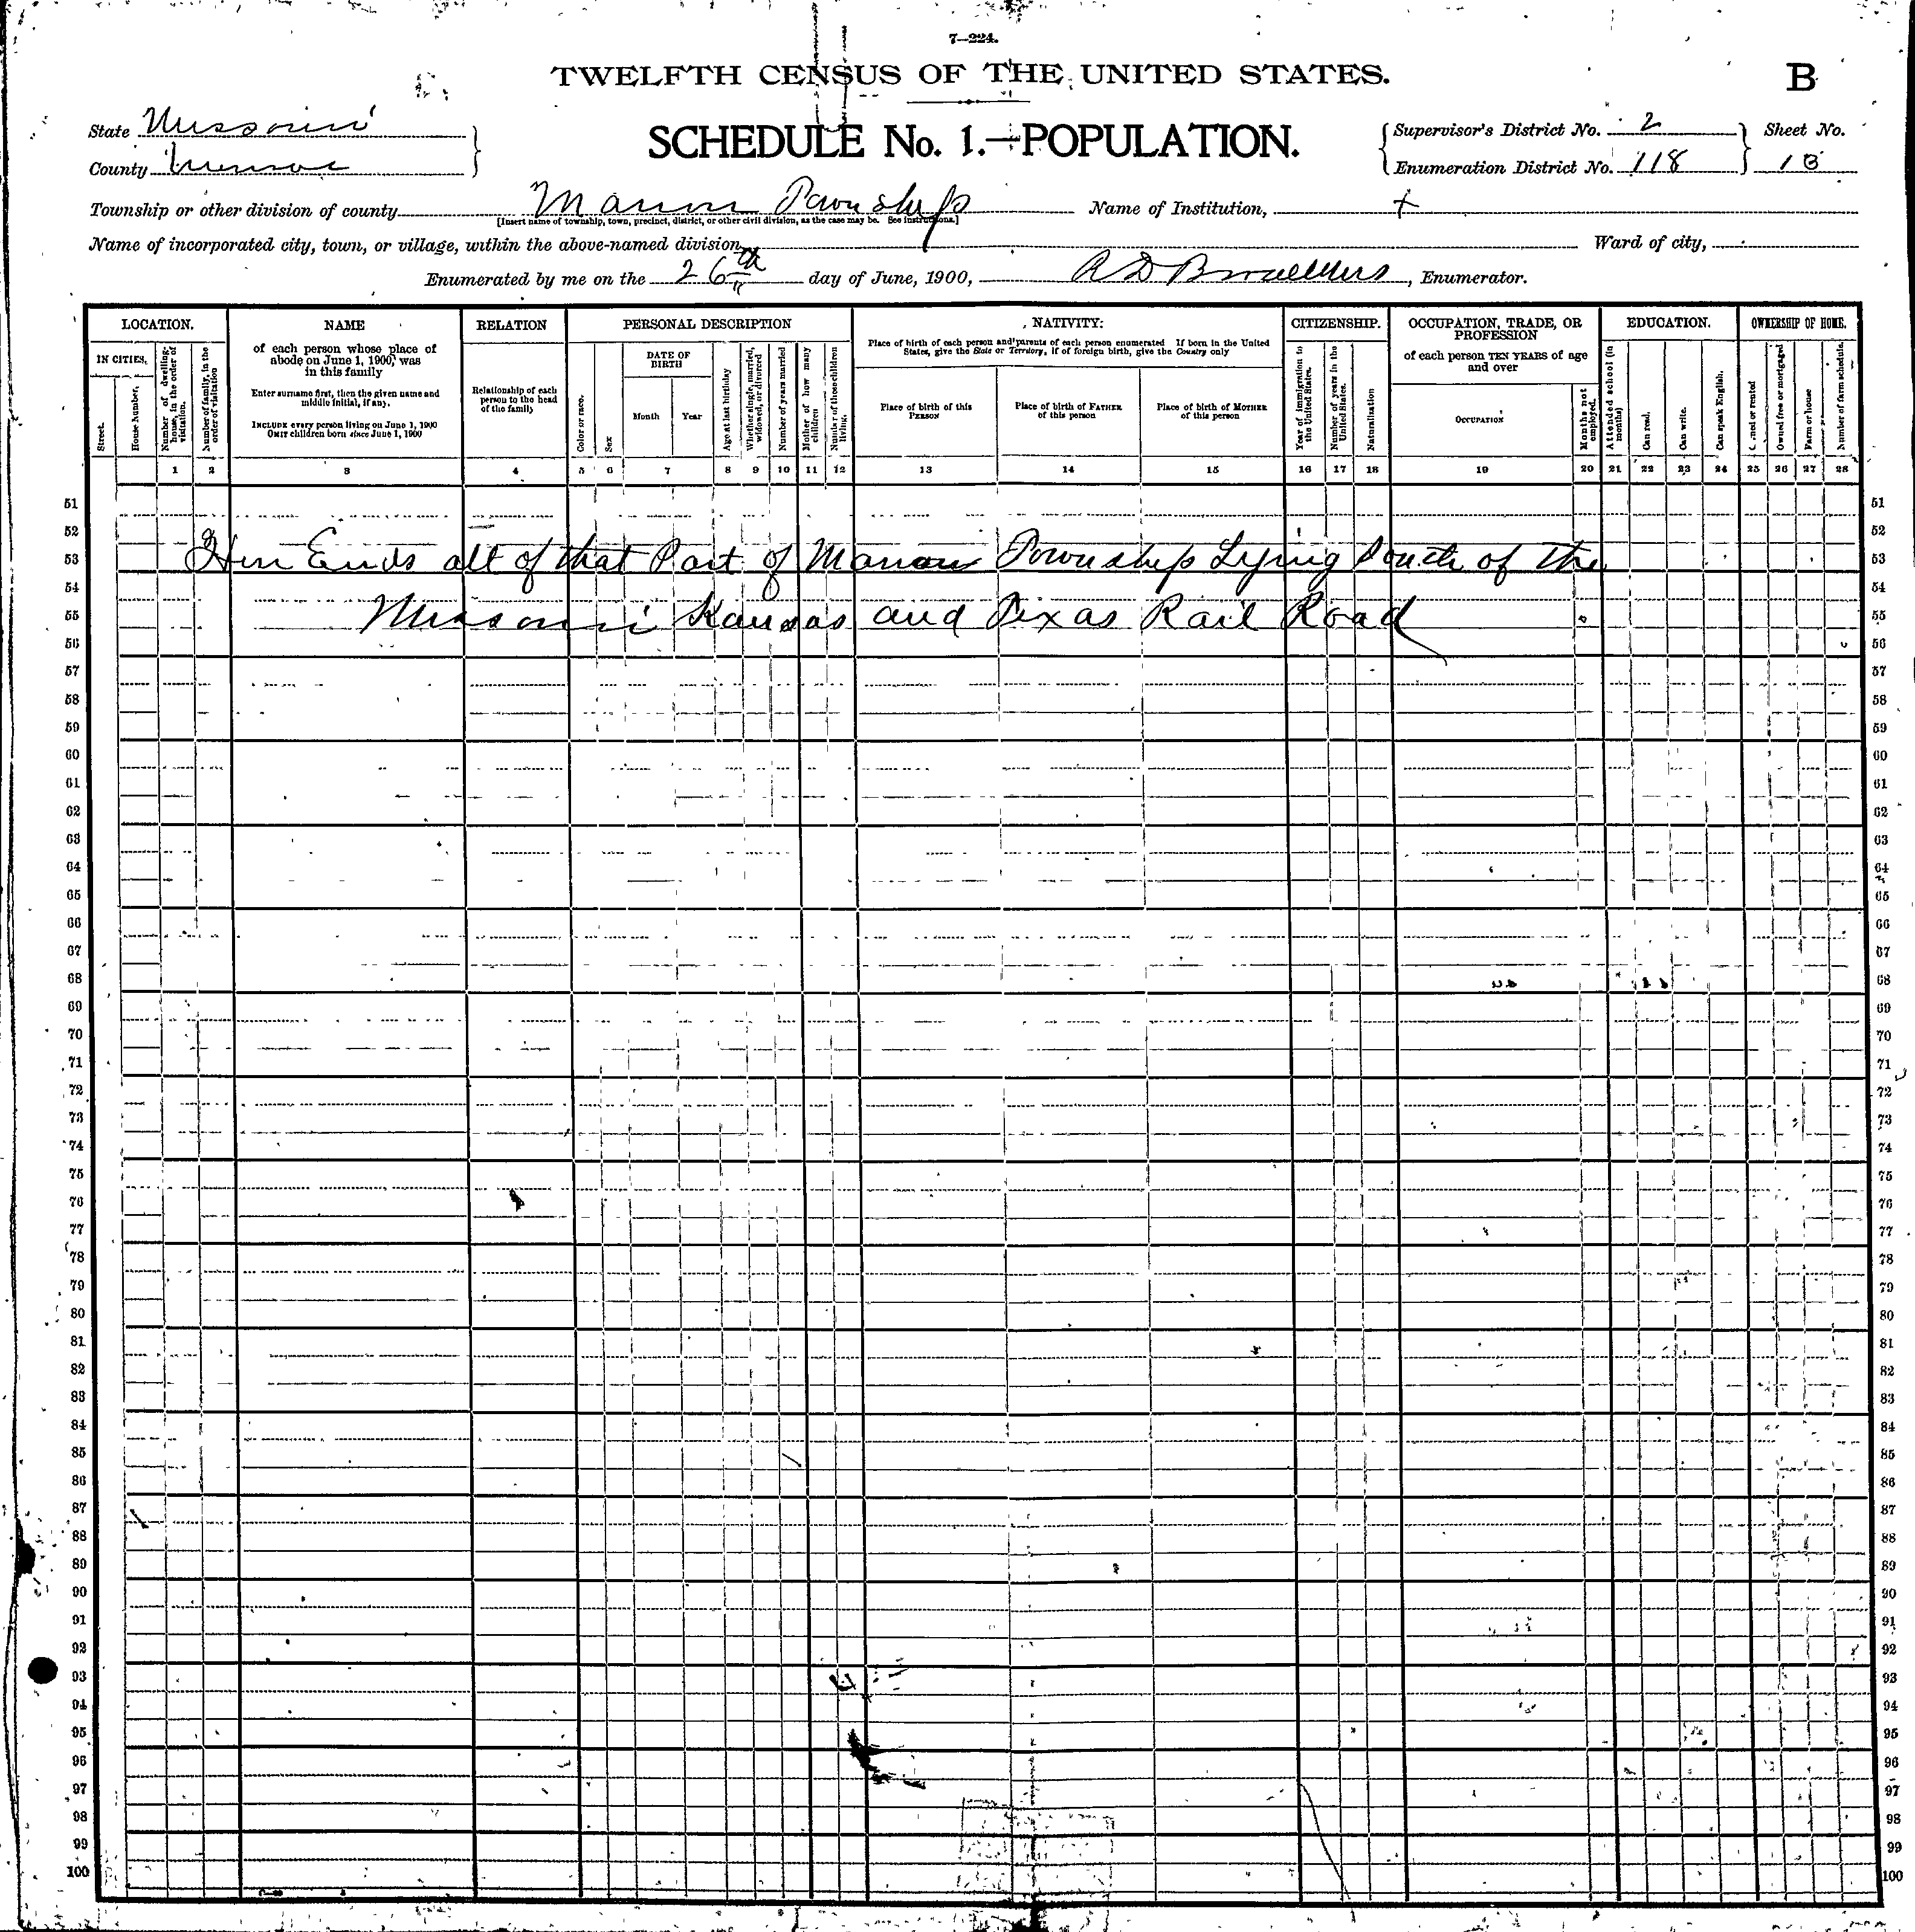 7—224.
TWELFTH CENSUS OF THE UNITED STATES.
B
State Missouri
County Monroe
SCHEDULE No. 1.—POPULATION.
Supervisor's District No. 2
Enumeration District No. 118
Sheet No.
Township or other division of county Marion Township
[Insert name of township, town, precinct, district, or other civil division, as the case may be. See instructions.]
Name of Institution, x
Name of incorporated city, town, or village, within the above-named division,
Ward of city,
Enumerated by me on the 26th day of June, 1900, Enumerator.
LOCATION.
IN CITIES.
Street.
House Number.
Number of dwelling-house, in the order of visitation.
Number of family, in the order of visitation
NAME
of each person whose place of abode on June 1, 1900, was in this family
Enter surname first, then the given name and middle initial, if any.
INCLUDE every person living on June 1, 1900
OMIT children born since June 1, 1900
RELATION
Relationship of each person to the head of the family
PERSONAL DESCRIPTION
Color or race.
Sex
DATE OF BIRTH
Month
Year
Age at last birthday
Whether single, married, widowed, or divorced
Number of years married
Mother of how many children
Number of these children living.
NATIVITY.
Place of birth of each person and parents of each person enumerated If born in the United States, give the State or Territory, if of foreign birth, give the Country only
Place of birth of this PERSON
Place of birth of FATHER of this person
Place of birth of MOTHER of this person
CITIZENSHIP.
Year of immigration to the United States.
Number of years in the United States.
Naturalization
OCCUPATION, TRADE, OR PROFESSION
of each person TEN YEARS of age and over
OCCUPATION
Months not employed.
EDUCATION.
Attended school (in months)
Can read.
Can write.
Can speak English.
OWNERSHIP OF HOME.
Owned or rented
Owned free or mortgaged
Farm or house
Number of farm schedule.
1 2 3 4 5 6 7 8 9 10 11 12 13 14 15 16 17 18 19 20 21 22 23 24 25 26 27 28
51 51
52 52
53 Ends all of that Part of Marion Township Lying South of the 53
54 54
55 Missouri Kansas and Texas Rail Road 55
56 56
57 57
58 58
59 59
60 60
61 61
62 62
63 63
64 64
65 65
66 66
67 67
68 68
69 69
70 70
71 71
72 72
73 73
74 74
75 75
76 76
77 77
78 78
79 79
80 80
81 81
82 82
83 83
84 84
85 85
86 86
87 87
88 88
89 89
90 90
91 91
92 92
93 93
94 94
95 95
96 96
97 97
98 98
99 99
100 100